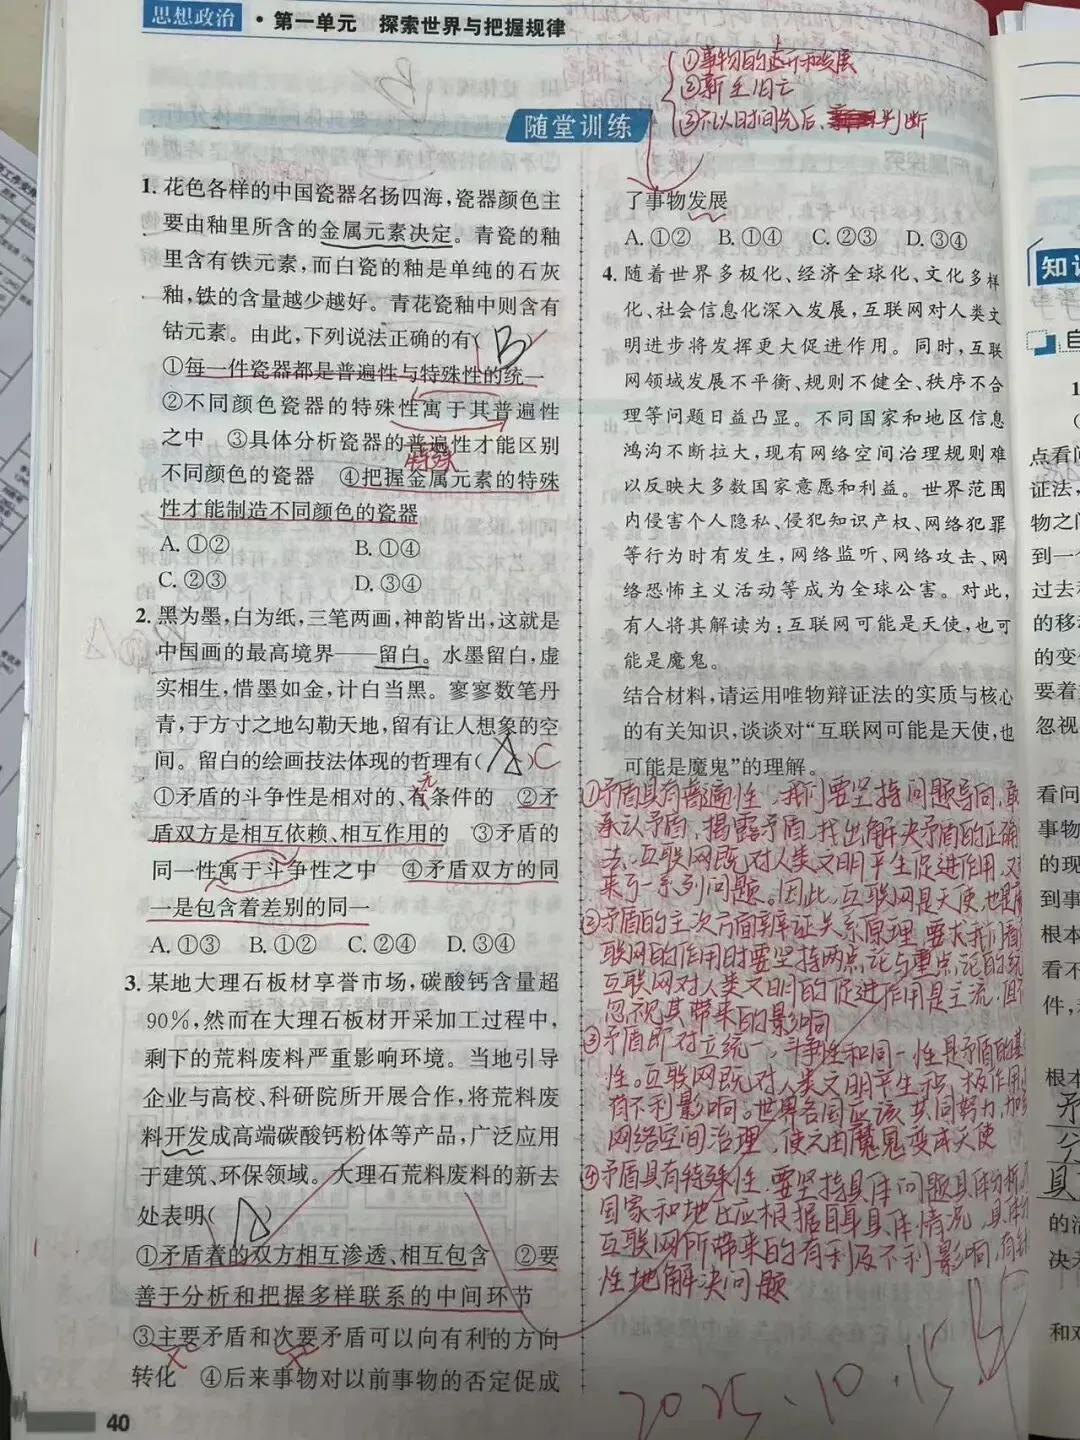 思想政治 · 第一单元 探索世界与把握规律
随堂训练
1. 花色各样的中国瓷器名扬四海,瓷器颜色主
要由釉里所含的金属元素决定。青瓷的釉
里含有铁元素,而白瓷的釉是单纯的石灰
釉,铁的含量越少越好。青花瓷釉中则含有
钴元素。由此,下列说法正确的有( B )
①每一件瓷器都是普遍性与特殊性的统一
②不同颜色瓷器的特殊性寓于其普遍性
之中 ③具体分析瓷器的普遍性才能区别
特殊
不同颜色的瓷器 ④把握金属元素的特殊
性才能制造不同颜色的瓷器
A. ①② B. ①④
C. ②③ D. ③④
2. 黑为墨,白为纸,三笔两画,神韵皆出,这就是
中国画的最高境界——留白。水墨留白,虚
实相生,惜墨如金,计白当黑。寥寥数笔丹
青,于方寸之地勾勒天地,留有让人想象的空
间。留白的绘画技法体现的哲理有( A )C
无
①矛盾的斗争性是相对的、有条件的 ②矛
盾双方是相互依赖、相互作用的 ③矛盾的
同一性寓于斗争性之中 ④矛盾双方的同
一是包含着差别的同一
A. ①③ B. ①② C. ②④ D. ③④
3. 某地大理石板材享誉市场,碳酸钙含量超
90%,然而在大理石板材开采加工过程中,
剩下的荒料废料严重影响环境。当地引导
企业与高校、科研院所开展合作,将荒料废
料开发成高端碳酸钙粉体等产品,广泛应用
于建筑、环保领域。大理石荒料废料的新去
处表明( A )
①矛盾着的双方相互渗透、相互包含 ②要
善于分析和把握多样联系的中间环节
③主要矛盾和次要矛盾可以向有利的方向
转化 ④后来事物对以前事物的否定促成
40
①事物的更新和发展
②新生旧亡
③不以时间先后、判断
了事物发展
A. ①② B. ①④ C. ②③ D. ③④
4. 随着世界多极化、经济全球化、文化多样
化、社会信息化深入发展,互联网对人类文
明进步将发挥更大促进作用。同时,互联
网领域发展不平衡、规则不健全、秩序不合
理等问题日益凸显。不同国家和地区信息
鸿沟不断拉大,现有网络空间治理规则难
以反映大多数国家意愿和利益。世界范围
内侵害个人隐私、侵犯知识产权、网络犯罪
等行为时有发生,网络监听、网络攻击、网
络恐怖主义活动等成为全球公害。对此,
有人将其解读为:互联网可能是天使,也可
能是魔鬼。
结合材料,请运用唯物辩证法的实质与核心
的有关知识,谈谈对“互联网可能是天使,也
可能是魔鬼”的理解。
①矛盾具有普遍性,我们要坚持问题导向,
承认矛盾,揭露矛盾,找出解决矛盾的正确
法,互联网既对人类文明产生促进作用,又
来了一系列问题。因此,互联网是天使,也是
②矛盾的主次方面辩证关系原理,要求我们看
联网的作用时要坚持两点论与重点论的统
互联网对人类文明的促进作用是主流,但
忽视其带来的影响
③矛盾即对立统一,斗争性和同一性是矛盾的基
性。互联网既对人类文明产生积极作用,
有不利影响。世界各国应该共同努力,加强
网络空间治理,使之由魔鬼变成天使
④矛盾具有特殊性,要坚持具体问题具体分析,
国家和地区应根据自身具体情况,具体
互联网所带来的有利及不利影响,有针
性地解决问题
2025.10.15
知识
自
点看问
证法,
物之间
到一个
过去和
的移
的变化
要着
忽视
看问
事物
的现
到事
根本
看不
件,
根本
具
的活
决
和对